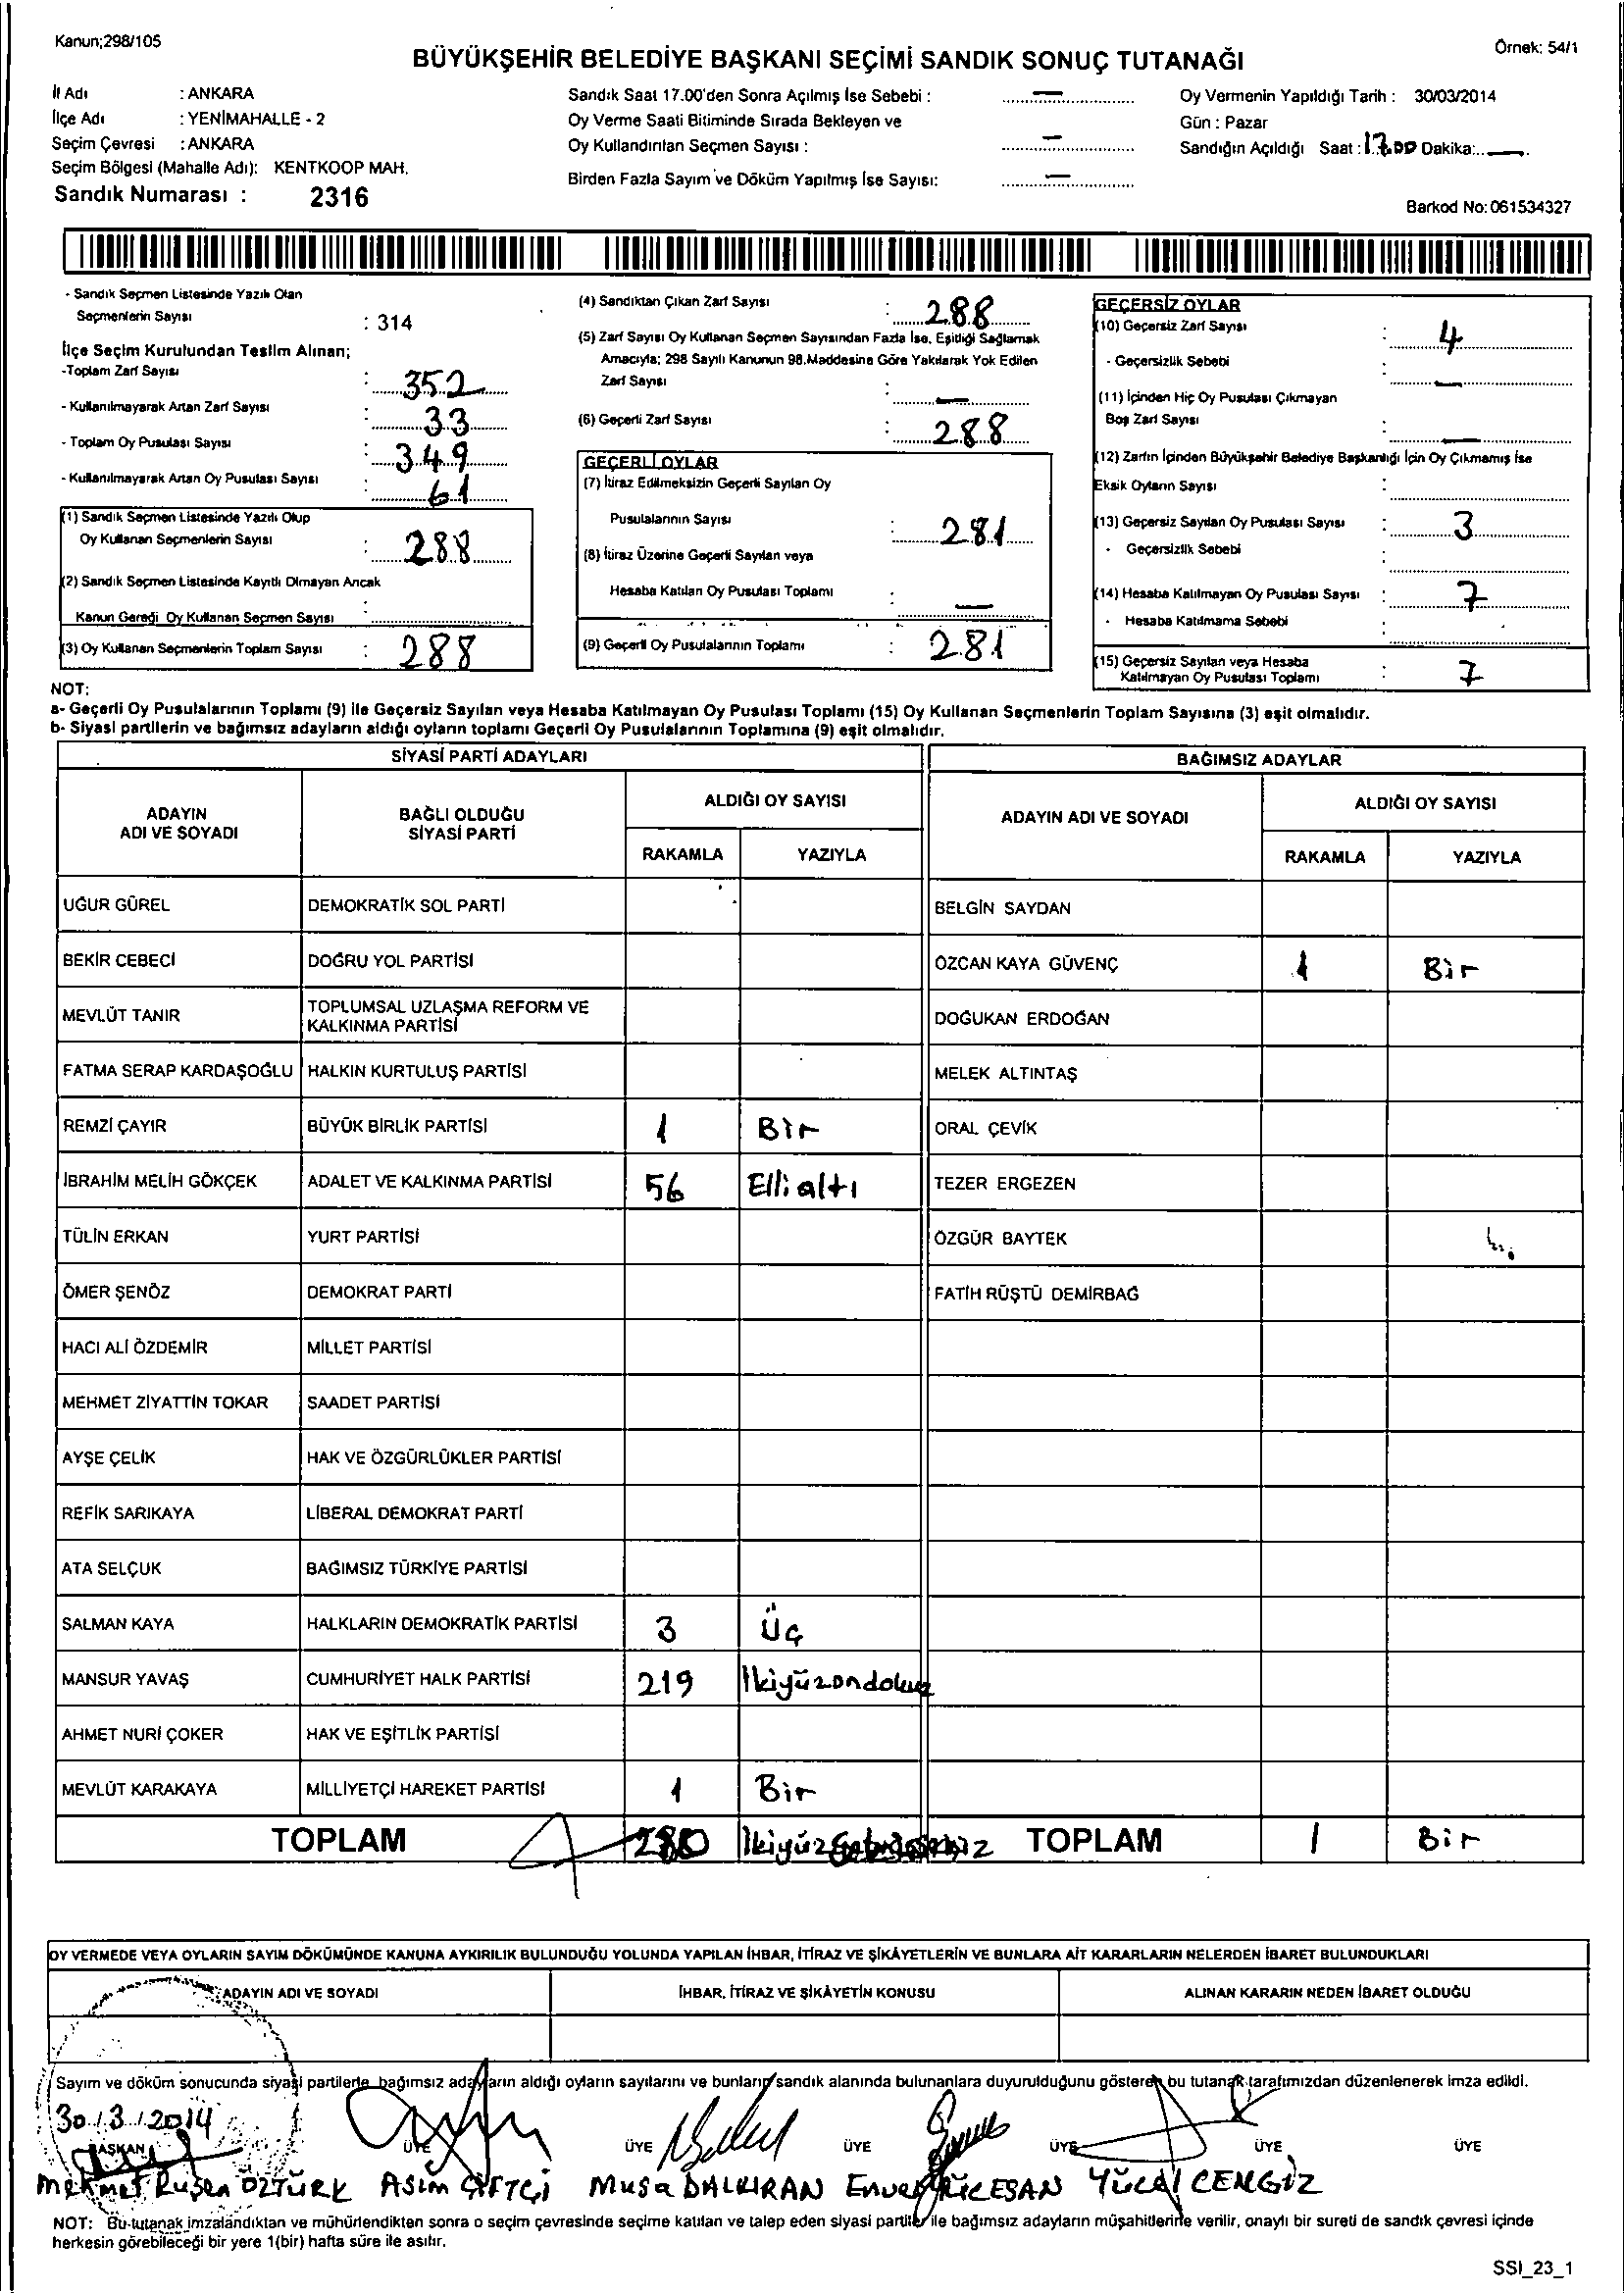 Kanun;298/105
Örnek: 54/1
BÜYÜKŞEHİR BELEDİYE BAŞKANI SEÇİMİ SANDIK SONUÇ TUTANAĞI
İl Adı : ANKARA
İlçe Adı : YENİMAHALLE - 2
Seçim Çevresi : ANKARA
Seçim Bölgesi (Mahalle Adı): KENTKOOP MAH.
Sandık Numarası : 2316
Sandık Saat 17.00'den Sonra Açılmış İse Sebebi : —
Oy Verme Saati Bitiminde Sırada Bekleyen ve
Oy Kullandırılan Seçmen Sayısı : —
Birden Fazla Sayım ve Döküm Yapılmış İse Sayısı: —
Oy Vermenin Yapıldığı Tarih : 30/03/2014
Gün : Pazar
Sandığın Açıldığı Saat : 17.00 Dakika: —
Barkod No: 061534327
- Sandık Seçmen Listesinde Yazılı Olan
Seçmenlerin Sayısı : 314
İlçe Seçim Kurulundan Teslim Alınan;
-Toplam Zarf Sayısı : 352
- Kullanılmayarak Artan Zarf Sayısı : 33
- Toplam Oy Pusulası Sayısı : 349
- Kullanılmayarak Artan Oy Pusulası Sayısı : 61
(1) Sandık Seçmen Listesinde Yazılı Olup
Oy Kullanan Seçmenlerin Sayısı : 288
(2) Sandık Seçmen Listesinde Kayıtlı Olmayan Ancak
Kanun Gereği Oy Kullanan Seçmen Sayısı :
(3) Oy Kullanan Seçmenlerin Toplam Sayısı : 288
(4) Sandıktan Çıkan Zarf Sayısı : 288
(5) Zarf Sayısı Oy Kullanan Seçmen Sayısından Fazla İse, Eşitliği Sağlamak
Amacıyla; 298 Sayılı Kanunun 98.Maddesine Göre Yakılarak Yok Edilen
Zarf Sayısı : —
(6) Geçerli Zarf Sayısı : 288
GEÇERLİ OYLAR
(7) İtiraz Edilmeksizin Geçerli Sayılan Oy
Pusulalarının Sayısı : 281
(8) İtiraz Üzerine Geçerli Sayılan veya
Hesaba Katılan Oy Pusulası Toplamı : —
(9) Geçerli Oy Pusulalarının Toplamı : 281
GEÇERSİZ OYLAR
(10) Geçersiz Zarf Sayısı : 4
- Geçersizlik Sebebi : —
(11) İçinden Hiç Oy Pusulası Çıkmayan
Boş Zarf Sayısı : —
(12) Zarfın İçinden Büyükşehir Belediye Başkanlığı İçin Oy Çıkmamış İse
Eksik Oyların Sayısı :
(13) Geçersiz Sayılan Oy Pusulası Sayısı : 3
- Geçersizlik Sebebi :
(14) Hesaba Katılmayan Oy Pusulası Sayısı : 7
- Hesaba Katılmama Sebebi :
(15) Geçersiz Sayılan veya Hesaba
Katılmayan Oy Pusulası Toplamı : 7
NOT:
a- Geçerli Oy Pusulalarının Toplamı (9) ile Geçersiz Sayılan veya Hesaba Katılmayan Oy Pusulası Toplamı (15) Oy Kullanan Seçmenlerin Toplam Sayısına (3) eşit olmalıdır.
b- Siyasi partilerin ve bağımsız adayların aldığı oyların toplamı Geçerli Oy Pusulalarının Toplamına (9) eşit olmalıdır.
SİYASİ PARTİ ADAYLARI
ADAYIN ADI VE SOYADI BAĞLI OLDUĞU SİYASİ PARTİ ALDIĞI OY SAYISI
RAKAMLA YAZIYLA
UĞUR GÜREL DEMOKRATİK SOL PARTİ
BEKİR CEBECİ DOĞRU YOL PARTİSİ
MEVLÜT TANIR TOPLUMSAL UZLAŞMA REFORM VE KALKINMA PARTİSİ
FATMA SERAP KARDAŞOĞLU HALKIN KURTULUŞ PARTİSİ
REMZİ ÇAYIR BÜYÜK BİRLİK PARTİSİ 1 Bir
İBRAHİM MELİH GÖKÇEK ADALET VE KALKINMA PARTİSİ 56 Elli altı
TÜLİN ERKAN YURT PARTİSİ
ÖMER ŞENÖZ DEMOKRAT PARTİ
HACI ALİ ÖZDEMİR MİLLET PARTİSİ
MEHMET ZİYATTİN TOKAR SAADET PARTİSİ
AYŞE ÇELİK HAK VE ÖZGÜRLÜKLER PARTİSİ
REFİK SARIKAYA LİBERAL DEMOKRAT PARTİ
ATA SELÇUK BAĞIMSIZ TÜRKİYE PARTİSİ
SALMAN KAYA HALKLARIN DEMOKRATİK PARTİSİ 3 Üç
MANSUR YAVAŞ CUMHURİYET HALK PARTİSİ 219 İkiyüzondokuz
AHMET NURİ ÇOKER HAK VE EŞİTLİK PARTİSİ
MEVLÜT KARAKAYA MİLLİYETÇİ HAREKET PARTİSİ 1 Bir
TOPLAM 280
BAĞIMSIZ ADAYLAR
ADAYIN ADI VE SOYADI ALDIĞI OY SAYISI
RAKAMLA YAZIYLA
BELGİN SAYDAN
ÖZCAN KAYA GÜVENÇ 1 Bir
DOĞUKAN ERDOĞAN
MELEK ALTINTAŞ
ORAL ÇEVİK
TEZER ERGEZEN
ÖZGÜR BAYTEK
FATİH RÜŞTÜ DEMİRBAĞ
TOPLAM 1 Bir
OY VERMEDE VEYA OYLARIN SAYIM DÖKÜMÜNDE KANUNA AYKIRILIK BULUNDUĞU YOLUNDA YAPILAN İHBAR, İTİRAZ VE ŞİKÂYETLERİN VE BUNLARA AİT KARARLARIN NELERDEN İBARET BULUNDUKLARI
ADAYIN ADI VE SOYADI İHBAR, İTİRAZ VE ŞİKÂYETİN KONUSU ALINAN KARARIN NEDEN İBARET OLDUĞU
Sayım ve döküm sonucunda siyasi partilerle bağımsız adayların aldığı oyların sayılarını ve bunların sandık alanında bulunanlara duyurulduğunu gösteren bu tutanak tarafımızdan düzenlenerek imza edildi.
30/3/2014
BAŞKAN ÜYE ÜYE ÜYE ÜYE ÜYE ÜYE
Mehmet Ruşen ÖZTÜRK Asım ÇİFTÇİ Musa DALKIRAN Enver Yücel CENGİZ
NOT: Bu tutanak imzalandıktan ve mühürlendikten sonra o seçim çevresinde seçime katılan ve talep eden siyasi partiler ile bağımsız adayların müşahitlerine verilir, onaylı bir sureti de sandık çevresi içinde
herkesin görebileceği bir yere 1(bir) hafta süre ile asılır.
SSI_23_1